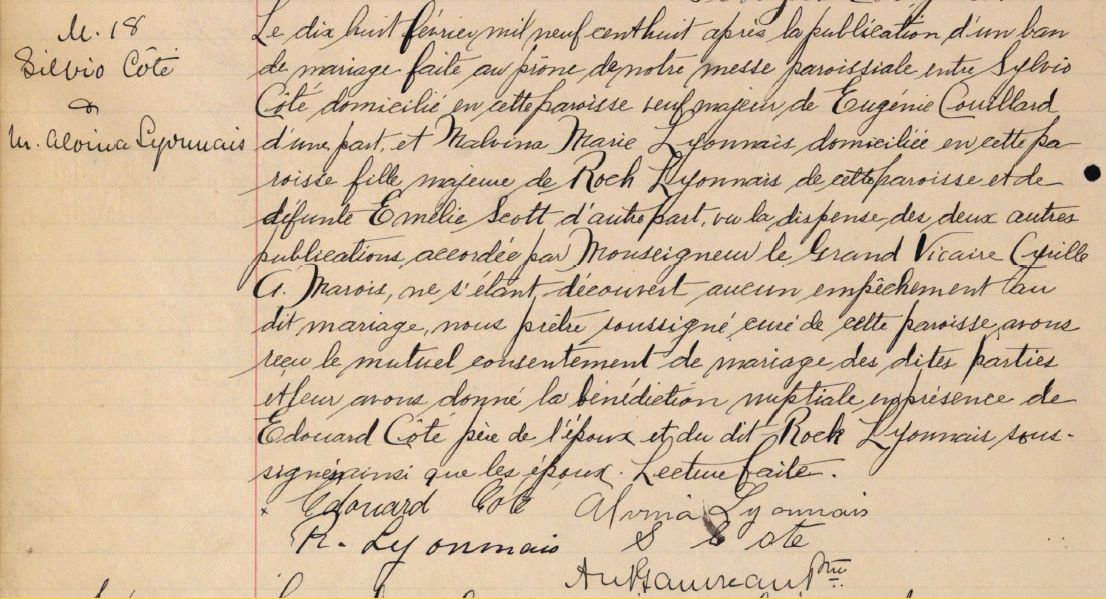 M. 18
Silvio Côté
&
M. Alvina Lyonnais
Le dix huit février mil neuf cent huit après la publication d'un ban
de mariage faite au prône de notre messe paroissiale entre Sylvio
Côté domicilié en cette paroisse veuf majeur de Eugénie Couillard
d'une part, et Malvina Marie Lyonnais domiciliée en cette pa
roisse fille majeure de Roch Lyonnais de cette paroisse et de
défunte Emélie Scott d'autre part, vu la dispense des deux autres
publications accordée par Monseigneur le Grand Vicaire Cyrille
A. Marois, ne s'étant découvert aucun empêchement au
dit mariage, nous prêtre soussigné curé de cette paroisse avons
reçu le mutuel consentement de mariage des dites parties
et leur avons donné la bénédiction nuptiale en présence de
Edouard Côté père de l'époux et du dit Rock Lyonnais sous-
signés ainsi que les époux. Lecture faite.
Edouard Coté Alvina Lyonnais
R. Lyonnais S Cote
Ptre